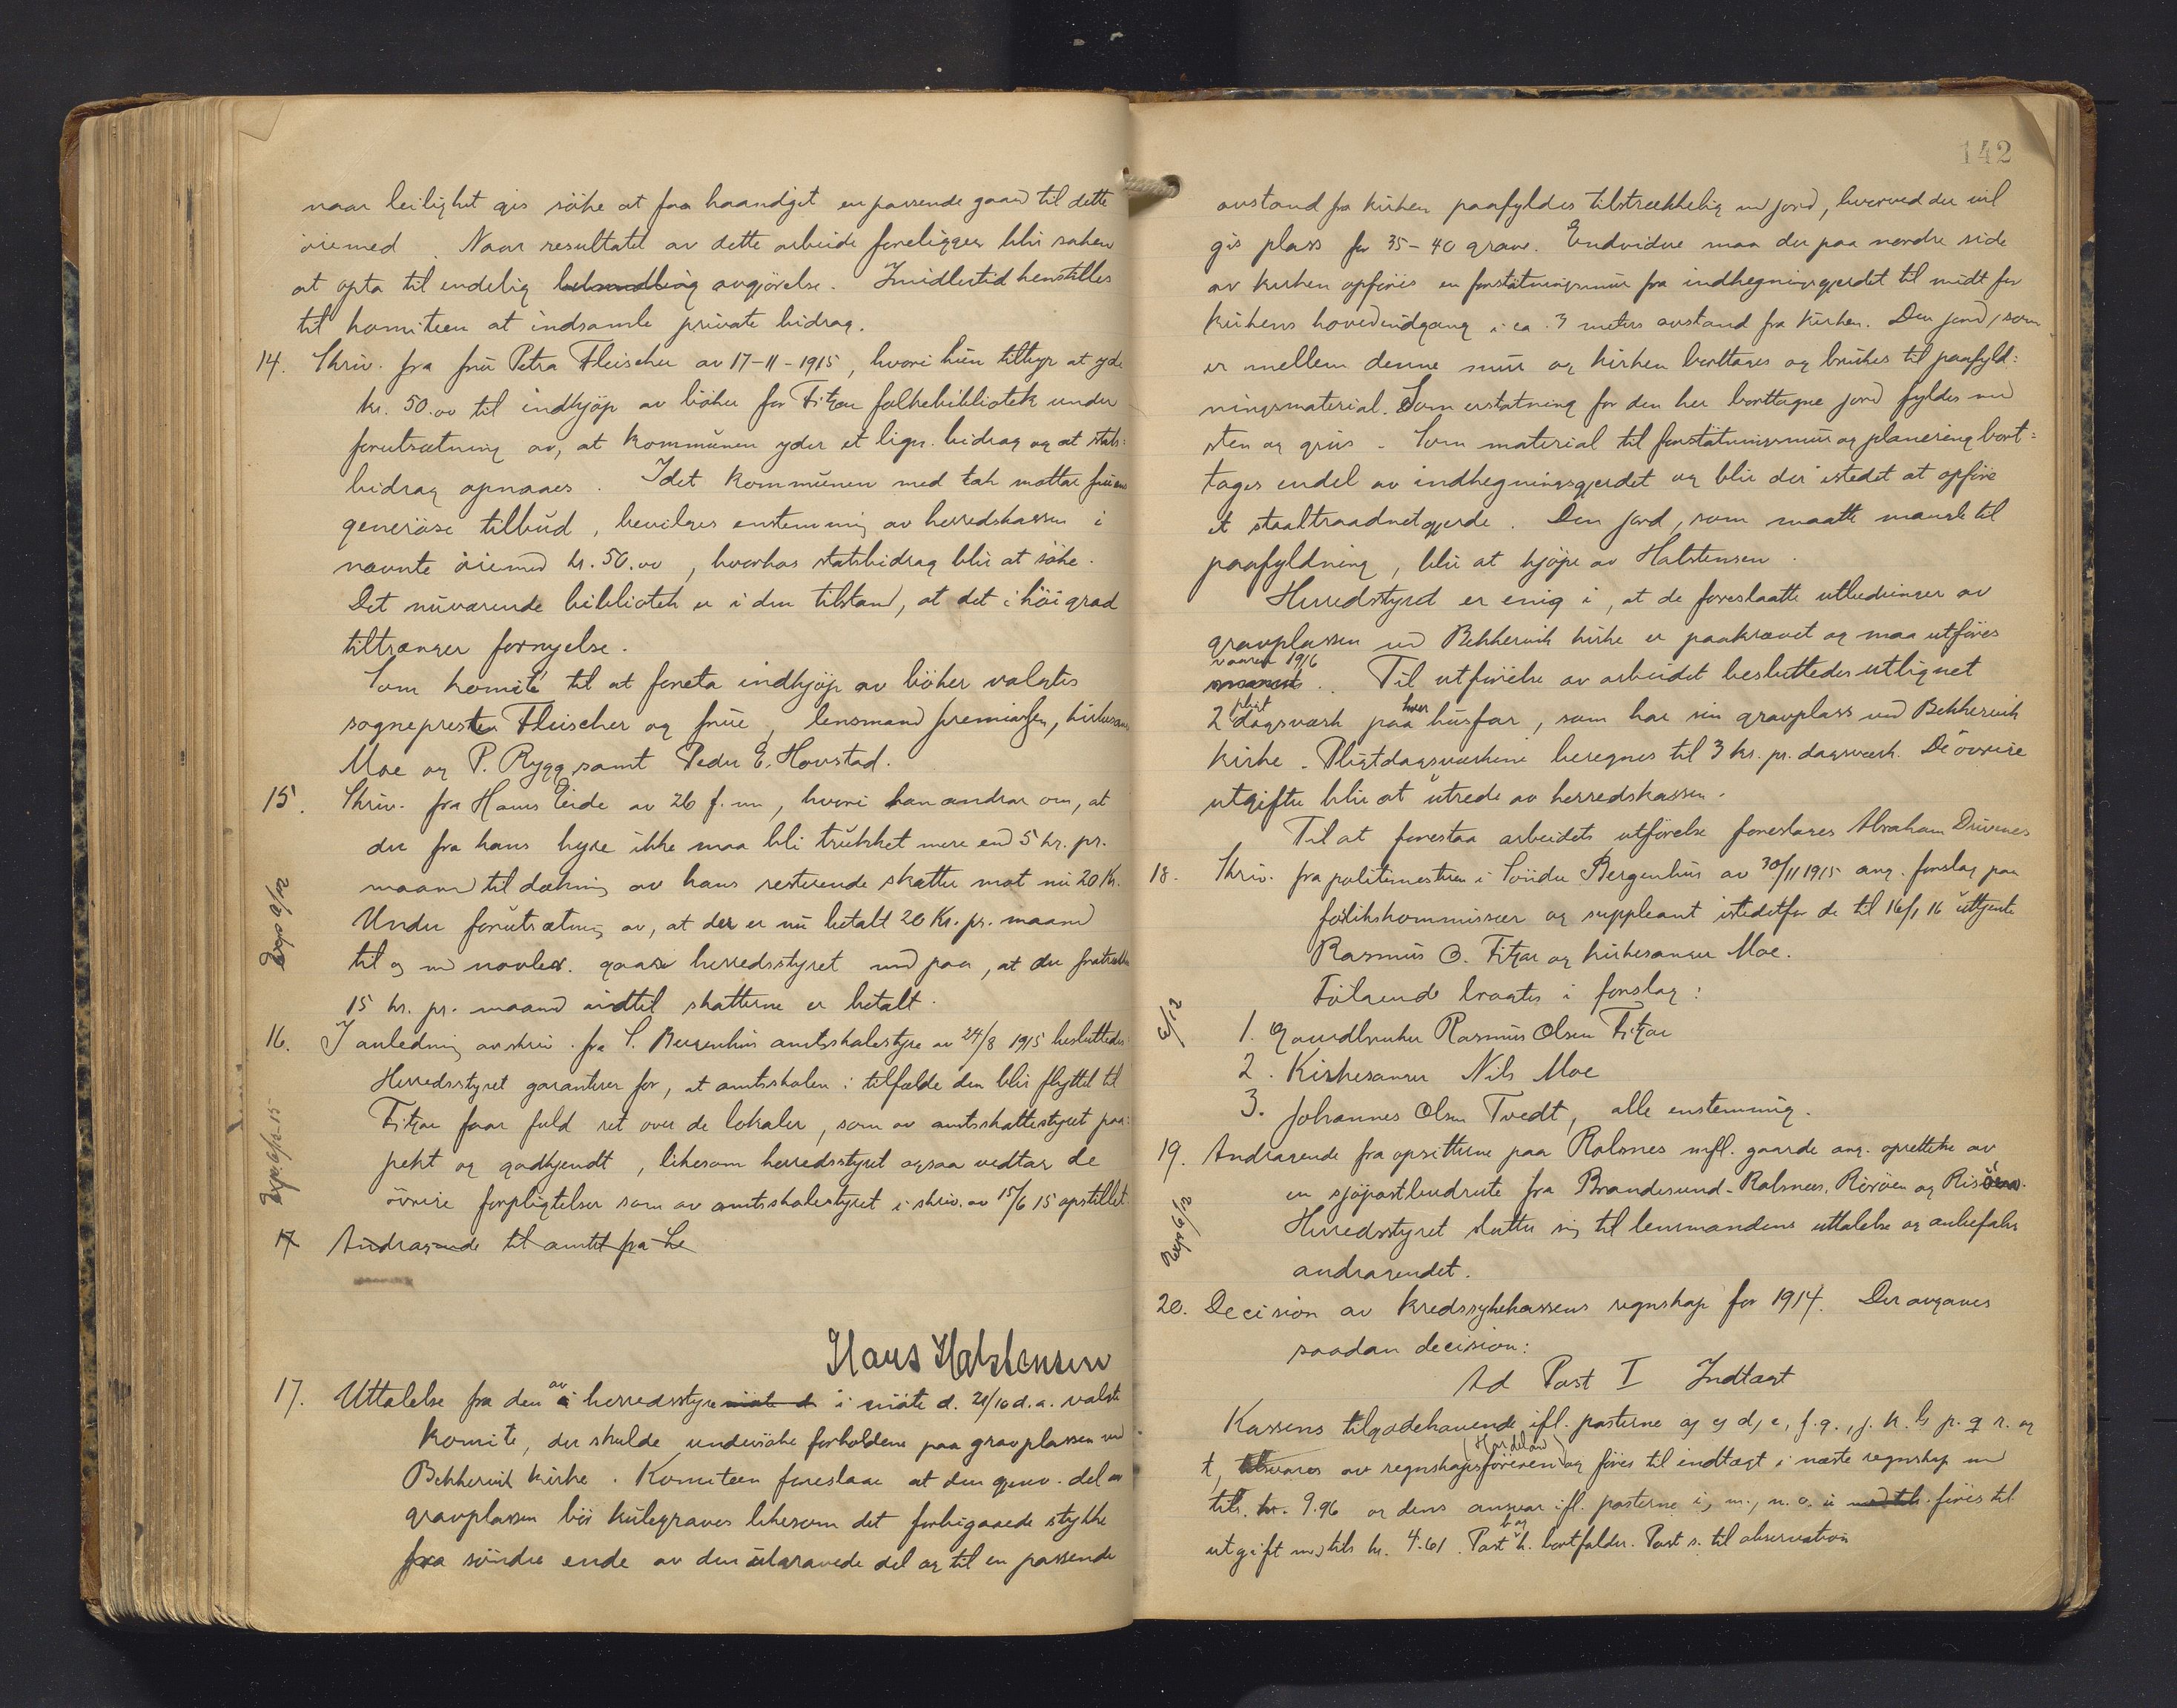 naar leilighet gis söke at faa haandgit en passende gaard til dette
öiemed. Naar resultatet av dette arbeide foreligger blir saken
at opta til endelig behandling avgjörelse. Imidlertid henstilles
til komiteen at indsamle private bidrag.
14. Skriv. fra frü Petra Fleischer av 17-11-1915, hvori hün tilbyr at yde
kr. 50.00 til indkjöp av böker for Fitjar folkebibliotek under
forutsætning av, at kommünen yder et lign. bidrag og at stats=
bidrag opnaaes. Idet kommünen med tak mottar früens
generöse tilbüd, bevilges enstemmig av herredskassen i
nævnte öiemed kr. 50.00, hvorhos statsbidrag blir at söke.
Det nüværende bibliotek er i den tilstand, at det i höi grad
tiltrænger fornyelse.
Som komité til at foreta indkjöp av böker valgtes
sogneprest Fleischer og früe, lensmand Jermiassen, kirkesanger
Moe og P. Rygg samt Peder E. Hovstad.
15. Skriv. fra Hans Eide av 26 f. m., hvori han andrar om, at
der fra hans hyre ikke maa bli trükket mere end 5 kr. pr.
maaned til dækning av hans resterende skatter mot nü 20 Kr.
Under forütsætning av, at der er nü betalt 20 Kr. pr. maaned
til og med novbr. gaar herredsstyret med paa, at der fratrækkes
15 kr. pr. maaned indtil skatterne er betalt.
Expr 9/12
16. I anledning av skriv. fra S. Bergenhüs amtsskolestyre av 24/8 1915 besluttedes:
Herredsstyret garanterer for, at amtsskolen i tilfælde den blir flyttet til
Fitjar faar fuld ret over de lokaler, som av amtsskattestyret paa=
pekt og godkjendt, likesom herredsstyret ogsaa vedtar de
övrige forpligtelser som av amtsskolestyret i skriv. av 15/6 15 opstillet.
Expr. 6/12-15
17 Andragende til amtet fra Le
Hans Halstensen
17. Uttalelse fra den av i herredsstyremöte d. i möte d. 21/10 d. a. valgte
komite, der skulde undersöke forholdene paa gravplassen ved
Bekkervik kirke. Komiteen foreslaar at den gjenv. del av
gravplassen bör külegraves likesom det forbigaaede stykke
fra söndre ende av den ütgravede del og til en passende
142
avstand fra kirken paafyldes tilstrækkelig med jord, hvorved der vil
gis plass for 35-40 grave. Endvidere maa der paa nordre side
av kirken opföres en forstötningsmür fra indhegningsgjerdet til midt for
kirkens hovedindgang i ca. 3 meters avstand fra kirken. Den jord, som
er mellem denne mür og kirken borttages og brükes til paafyld=
ningsmaterial. Som erstatning for den her borttagne jord fyldes med
sten og grüs. Som material til forstötningsmür og planering bort=
tages endel av indhegningsgjerdet og blir der istedet at opföre
et staaltraadnetgjerde. Den jord, som maatte mangle til
paafyldning, blir at kjöpe av Halstensen.
Herredsstyret er enig i, at de foreslaatte utbedringer av
gravplassen ved Bekkervik kirke er paakrævet og maa utföres
vaaren 1916
. Til utförelse av arbeidet besluttedes utlignet
2 pligtdagsværk paa hver hüsfar, som har sin gravplass ved Bekkervik
kirke. Pligtdagsværkene beregnes til 3 kr. pr. dagsværk. De övrige
utgifter blir at ütrede av herredskassen.
Til at forestaa arbeidets utförelse foreslaaes Abraham Drivenes
18. Skriv. fra politimesteren i Söndre Bergenhüs av 30/11 1915 ang. forslag paa
forlikskommissær og suppleant istedetfor de til 16/1 16 üttjente
Rasmüs O. Fitjar og kirkesanger Moe.
Fölgende bragtes i forslag:
6/12
1. Gaardbruker Rasmüs Olsen Fitjar
2. Kirkesanger Nils Moe
3. Johannes Olsen Tvedt, alle enstemmig.
19. Andragende fra opsitterne paa Rolsnes mfl. gaarde ang. oprettelse av
en sjöpostbudrute fra Brandesund-Rolsnes, Röröen og Risöen.
Herredsstyret slutter sig til lensmandens uttalelse og anbefaler
andragendet.
Expr 6/12
20. Decision av kredssykekassens regnskap for 1914. Der avgaves
saadan decision:
Ad Post I Indtægt
Kassens tilgodehavende ifl. posterne a, c, d, e, f. g., j. k. l, p. q r. og
t, tilsvares av regnskapsföreren (Hardeland) og föres til indtægt i næste regnskap med
tils. kr. 9.96 og dens ansvar ifl. posterne i, m., n. o. ü med tils. föres til
utgift med tils kr. 4.61. Post b og h. bortfalder. Post s. til observation